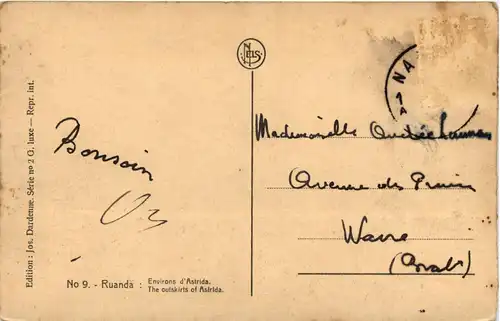 Edition : Jos. Dardenne. Série no 2 G. luxe — Repr. int.
NELS
NA
Bonsoir
Mademoiselle Andrée
Avenue des
Wavre
(Brabt)
No 9. - Ruanda : Environs d'Astrida.
The outskirts of Astrida.